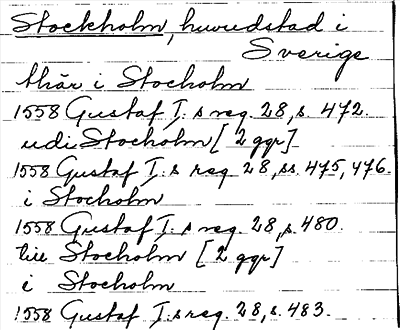 Stockholm, huvudstad i
Sverige
thär i Stocholm
1558 Gustaf I:s reg. 28, s. 472.
udi Stocholm [2 ggr]
1558 Gustaf I:s reg 28, ss. 475, 476.
i Stocholm
1558 Gustaf I:s reg. 28, s. 480.
till Stocholm [2 ggr]
i Stocholm
1558 Gustaf I:s reg. 28, s. 483.